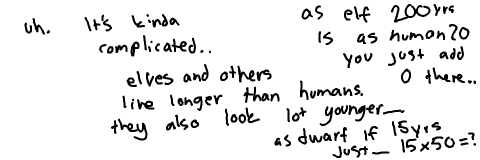 uh. It's kinda
complicated..
elves and others
live longer than humans.
they also look lot younger
as elf 200yrs
is as human 20
you just add
0 there..
as dwarf if 15yrs
just 15x50=?